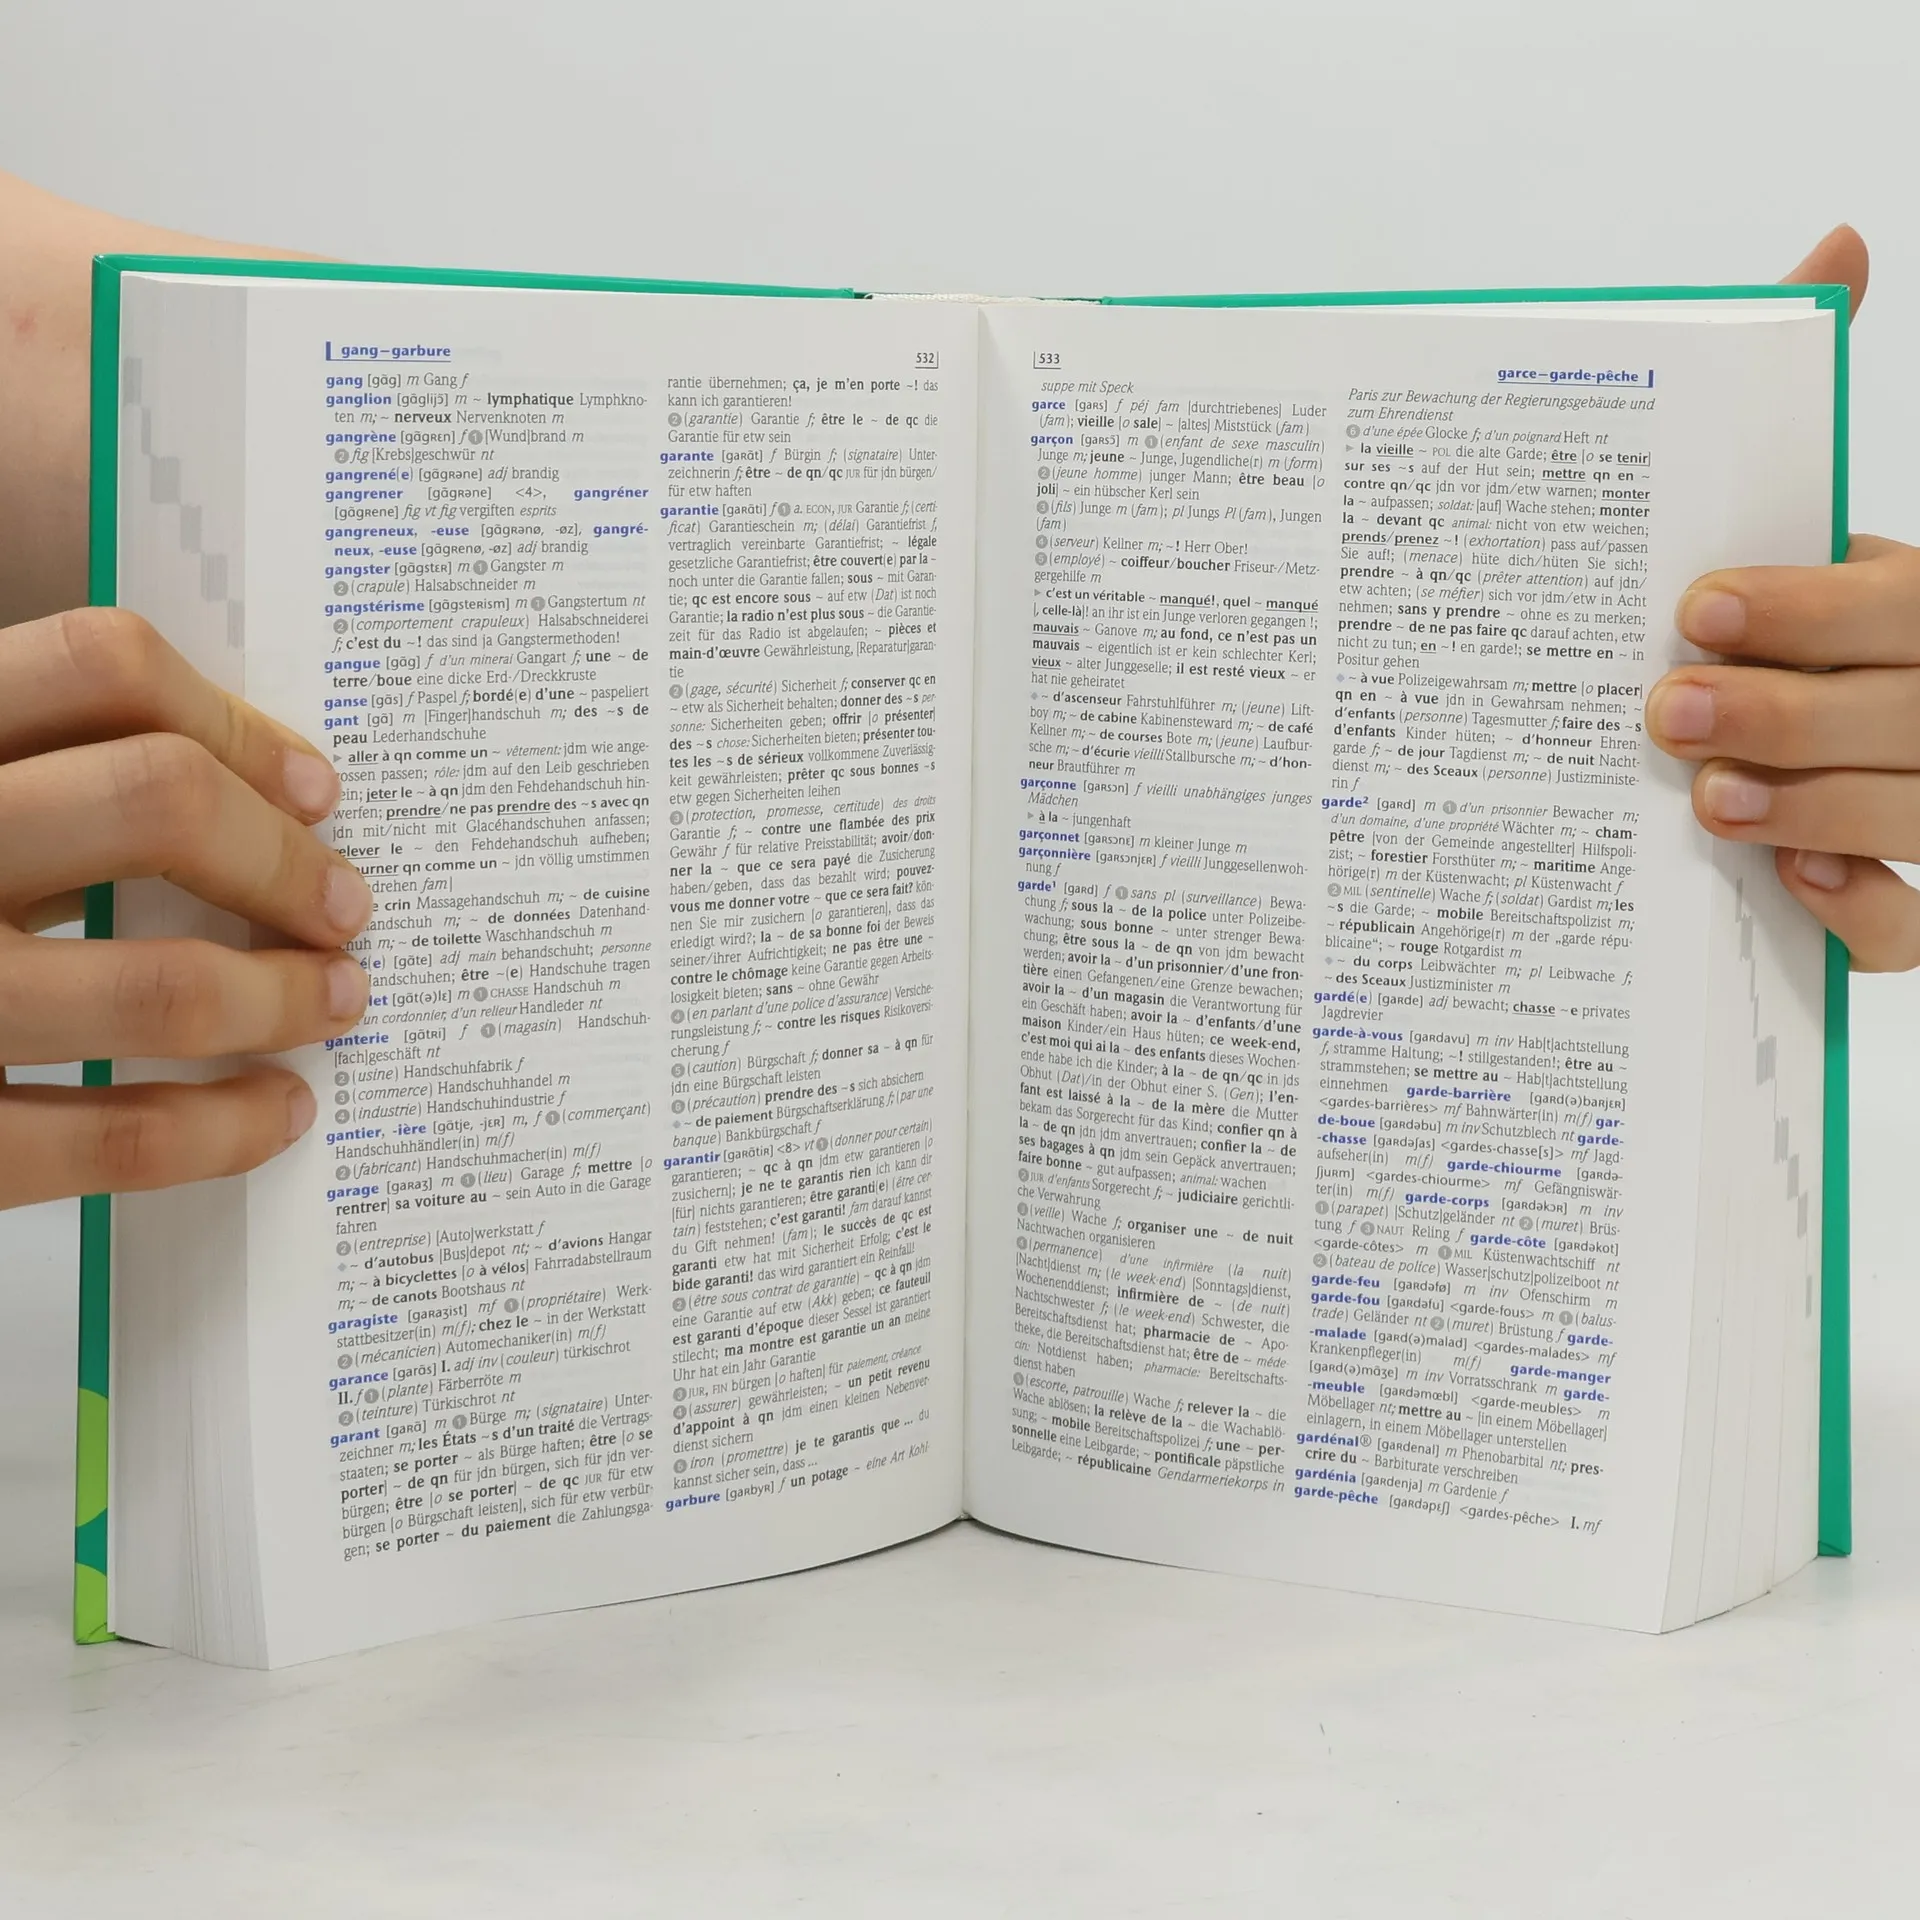 gang–garbure
532
gang [gɑ̃g] m Gang f
ganglion [gɑ̃glijɔ̃] m ~ lymphatique Lymphkno-
ten m; ~ nerveux Nervenknoten m
gangrène [gɑ̃gʀɛn] f ❶ [Wund]brand m
❷ fig [Krebs]geschwür nt
gangrené(e) [gɑ̃gʀəne] adj brandig
gangrener [gɑ̃gʀəne] <4>, gangréner
[gɑ̃gʀene] fig vt fig vergiften esprits
gangreneux, -euse [gɑ̃gʀənø, -øz], gangré-
neux, -euse [gɑ̃gʀenø, -øz] adj brandig
gangster [gɑ̃gstɛʀ] m ❶ Gangster m
❷ (crapule) Halsabschneider m
gangstérisme [gɑ̃gsteʀism] m ❶ Gangstertum nt
❷ (comportement crapuleux) Halsabschneiderei
f; c'est du ~! das sind ja Gangstermethoden!
gangue [gɑ̃g] f d'un minerai Gangart f; une ~ de
terre/boue eine dicke Erd-/Dreckkruste
ganse [gɑ̃s] f Paspel f; bordé(e) d'une ~ paspeliert
gant [gɑ̃] m [Finger]handschuh m; des ~s de
peau Lederhandschuhe
▸ aller à qn comme un ~ vêtement: jdm wie ange-
gossen passen; rôle: jdm auf den Leib geschrieben
sein; jeter le ~ à qn jdm den Fehdehandschuh hin-
werfen; prendre/ne pas prendre des ~s avec qn
jdn mit/nicht mit Glacéhandschuhen anfassen;
relever le ~ den Fehdehandschuh aufheben;
qn comme un ~ jdn völlig umstimmen
drehen fam]
crin Massagehandschuh m; ~ de cuisine
m; ~ de données Datenhand-
m; ~ de toilette Waschhandschuh m
[gɑ̃te] adj main behandschuht; personne
être ~(e) Handschuhe tragen
[gɑ̃t(ə)lɛ] m ❶ CHASSE Handschuh m
cordonnier, d'un relieur Handleder nt
ganterie [gɑ̃tʀi] f ❶ (magasin) Handschuh-
[fach]geschäft nt
❷ (usine) Handschuhfabrik f
❸ (commerce) Handschuhhandel m
❹ (industrie) Handschuhindustrie f
gantier, -ière [gɑ̃tje, -jɛʀ] m, f ❶ (commerçant)
Handschuhhändler(in) m(f)
❷ (fabricant) Handschuhmacher(in) m(f)
garage [gaʀaʒ] m ❶ (lieu) Garage f; mettre [o
rentrer] sa voiture au ~ sein Auto in die Garage
fahren
❷ (entreprise) [Auto]werkstatt f
◆ ~ d'autobus [Bus]depot nt; ~ d'avions Hangar
m; ~ à bicyclettes [o à vélos] Fahrradabstellraum
m; ~ de canots Bootshaus nt
garagiste [gaʀaʒist] mf ❶ (propriétaire) Werk-
stattbesitzer(in) m(f); chez le ~ in der Werkstatt
❷ (mécanicien) Automechaniker(in) m(f)
garance [gaʀɑ̃s] I. adj inv (couleur) türkischrot
II. f ❶ (plante) Färberröte m
❷ (teinture) Türkischrot nt
garant [gaʀɑ̃] m ❶ Bürge m; (signataire) Unter-
zeichner m; les États ~s d'un traité die Vertrags-
staaten; se porter ~ als Bürge haften; être [o se
porter] ~ de qn für jdn bürgen, sich für jdn ver-
bürgen; être [o se porter] ~ de qc JUR für etw
bürgen [o Bürgschaft leisten], sich für etw verbür-
gen; se porter ~ du paiement die Zahlungsga-
rantie übernehmen; ça, je m'en porte ~! das
kann ich garantieren!
❷ (garantie) Garantie f; être le ~ de qc die
Garantie für etw sein
garante [gaʀɑ̃t] f Bürgin f; (signataire) Unter-
zeichnerin f; être ~ de qn/qc JUR für jdn bürgen/
für etw haften
garantie [gaʀɑ̃ti] f ❶ a. ECON, JUR Garantie f; (certi-
ficat) Garantieschein m; (délai) Garantiefrist f,
vertraglich vereinbarte Garantiefrist; ~ légale
gesetzliche Garantiefrist; être couvert(e) par la ~
noch unter die Garantie fallen; sous ~ mit Garan-
tie; qc est encore sous ~ auf etw (Dat) ist noch
Garantie; la radio n'est plus sous ~ die Garantie-
zeit für das Radio ist abgelaufen; ~ pièces et
main-d'œuvre Gewährleistung, [Reparatur]garan-
tie
❷ (gage, sécurité) Sicherheit f; conserver qc en
~ etw als Sicherheit behalten; donner des ~s per-
sonne: Sicherheiten geben; offrir [o présenter]
des ~s chose: Sicherheiten bieten; présenter tou-
tes les ~s de sérieux vollkommene Zuverlässig-
keit gewährleisten; prêter qc sous bonnes ~s
etw gegen Sicherheiten leihen
❸ (protection, promesse, certitude) des droits
Garantie f; ~ contre une flambée des prix
Gewähr f für relative Preisstabilität; avoir/don-
ner la ~ que ce sera payé die Zusicherung
haben/geben, dass das bezahlt wird; pouvez-
vous me donner votre ~ que ce sera fait? kön-
nen Sie mir zusichern [o garantieren], dass das
erledigt wird?; la ~ de sa bonne foi der Beweis
seiner/ihrer Aufrichtigkeit; ne pas être une ~
contre le chômage keine Garantie gegen Arbeits-
losigkeit bieten; sans ~ ohne Gewähr
❹ (en parlant d'une police d'assurance) Versiche-
rungsleistung f; ~ contre les risques Risikoversi-
cherung f
❺ (caution) Bürgschaft f; donner sa ~ à qn für
jdn eine Bürgschaft leisten
❻ (précaution) prendre des ~s sich absichern
◆ ~ de paiement Bürgschaftserklärung f; (par une
banque) Bankbürgschaft f
garantir [gaʀɑ̃tiʀ] <8> vt ❶ (donner pour certain)
garantieren; ~ qc à qn jdm etw garantieren [o
zusichern]; je ne te garantis rien ich kann dir
[für] nichts garantieren; être garanti(e) (être cer-
tain) feststehen; c'est garanti! fam darauf kannst
du Gift nehmen! (fam); le succès de qc est
garanti etw hat mit Sicherheit Erfolg; c'est le
bide garanti! das wird garantiert ein Reinfall!
❷ (être sous contrat de garantie) ~ qc à qn jdm
eine Garantie auf etw (Akk) geben; ce fauteuil
est garanti d'époque dieser Sessel ist garantiert
stilecht; ma montre est garantie un an meine
Uhr hat ein Jahr Garantie
❸ JUR, FIN bürgen [o haften] für paiement, créance
❹ (assurer) gewährleisten; ~ un petit revenu
d'appoint à qn jdm einen kleinen Nebenver-
dienst sichern
❺ iron (promettre) je te garantis que ... du
kannst sicher sein, dass ...
garbure [gaʀbyʀ] f un potage ~ eine Art Kohl-
533
garce–garde-pêche
suppe mit Speck
garce [gaʀs] f péj fam [durchtriebenes] Luder
(fam); vieille [o sale] ~ [altes] Miststück (fam)
garçon [gaʀsɔ̃] m ❶ (enfant de sexe masculin)
Junge m; jeune ~ Junge, Jugendliche(r) m (form)
❷ (jeune homme) junger Mann; être beau [o
joli] ~ ein hübscher Kerl sein
❸ (fils) Junge m (fam); pl Jungs Pl (fam), Jungen
(fam)
❹ (serveur) Kellner m; ~! Herr Ober!
❺ (employé) ~ coiffeur/boucher Friseur-/Metz-
gergehilfe m
▸ c'est un véritable ~ manqué!, quel ~ manqué
[, celle-là]! an ihr ist ein Junge verloren gegangen !;
mauvais ~ Ganove m; au fond, ce n'est pas un
mauvais ~ eigentlich ist er kein schlechter Kerl;
vieux ~ alter Junggeselle; il est resté vieux ~ er
hat nie geheiratet
◆ ~ d'ascenseur Fahrstuhlführer m; (jeune) Lift-
boy m; ~ de cabine Kabinensteward m; ~ de café
Kellner m; ~ de courses Bote m; (jeune) Laufbur-
sche m; ~ d'écurie vieilli Stallbursche m; ~ d'hon-
neur Brautführer m
garçonne [gaʀsɔn] f vieilli unabhängiges junges
Mädchen
▸ à la ~ jungenhaft
garçonnet [gaʀsɔnɛ] m kleiner Junge m
garçonnière [gaʀsɔnjɛʀ] f vieilli Junggesellenwoh-
nung f
garde¹ [gaʀd] f ❶ sans pl (surveillance) Bewa-
chung f; sous la ~ de la police unter Polizeibe-
wachung; sous bonne ~ unter strenger Bewa-
chung; être sous la ~ de qn von jdm bewacht
werden; avoir la ~ d'un prisonnier/d'une fron-
tière einen Gefangenen/eine Grenze bewachen;
avoir la ~ d'un magasin die Verantwortung für
ein Geschäft haben; avoir la ~ d'enfants/d'une
maison Kinder/ein Haus hüten; ce week-end,
c'est moi qui ai la ~ des enfants dieses Wochen-
ende habe ich die Kinder; à la ~ de qn/qc in jds
Obhut (Dat)/in der Obhut einer S. (Gen); l'en-
fant est laissé à la ~ de la mère die Mutter
bekam das Sorgerecht für das Kind; confier qn à
la ~ de qn jdn jdm anvertrauen; confier la ~ de
ses bagages à qn jdm sein Gepäck anvertrauen;
faire bonne ~ gut aufpassen; animal: wachen
❷ JUR d'enfants Sorgerecht f; ~ judiciaire gerichtli-
che Verwahrung
❸ (veille) Wache f; organiser une ~ de nuit
Nachtwachen organisieren
❹ (permanence) d'une infirmière (la nuit)
[Nacht]dienst m; (le week-end) [Sonntags]dienst,
Wochenenddienst; infirmière de ~ (de nuit)
Nachtschwester f; (le week-end) Schwester, die
Bereitschaftsdienst hat; pharmacie de ~ Apo-
theke, die Bereitschaftsdienst hat; être de ~ méde-
cin: Notdienst haben; pharmacie: Bereitschafts-
dienst haben
❺ (escorte, patrouille) Wache f; relever la ~ die
Wache ablösen; la relève de la ~ die Wachablö-
sung; ~ mobile Bereitschaftspolizei f; une ~ per-
sonnelle eine Leibgarde; ~ pontificale päpstliche
Leibgarde; ~ républicaine Gendarmeriekorps in
Paris zur Bewachung der Regierungsgebäude und
zum Ehrendienst
❻ d'une épée Glocke f; d'un poignard Heft nt
▸ la vieille ~ POL die alte Garde; être [o se tenir]
sur ses ~s auf der Hut sein; mettre qn en ~
contre qn/qc jdn vor jdm/etw warnen; monter
la ~ aufpassen; soldat: [auf] Wache stehen; monter
la ~ devant qc animal: nicht von etw weichen;
prends/prenez ~! (exhortation) pass auf/passen
Sie auf!; (menace) hüte dich/hüten Sie sich!;
prendre ~ à qn/qc (prêter attention) auf jdn/
etw achten; (se méfier) sich vor jdm/etw in Acht
nehmen; sans y prendre ~ ohne es zu merken;
prendre ~ de ne pas faire qc darauf achten, etw
nicht zu tun; en ~! en garde!; se mettre en ~ in
Positur gehen
◆ ~ à vue Polizeigewahrsam m; mettre [o placer]
qn en ~ à vue jdn in Gewahrsam nehmen; ~
d'enfants (personne) Tagesmutter f; faire des ~s
d'enfants Kinder hüten; ~ d'honneur Ehren-
garde f; ~ de jour Tagdienst m; ~ de nuit Nacht-
dienst m; ~ des Sceaux (personne) Justizministe-
rin f
garde² [gaʀd] m ❶ d'un prisonnier Bewacher m;
d'un domaine, d'une propriété Wächter m; ~ cham-
pêtre [von der Gemeinde angestellter] Hilfspoli-
zist; ~ forestier Forsthüter m; ~ maritime Ange-
hörige(r) m der Küstenwacht; pl Küstenwacht f
❷ MIL (sentinelle) Wache f; (soldat) Gardist m; les
~s die Garde; ~ mobile Bereitschaftspolizist m;
~ républicain Angehörige(r) m der „garde répu-
blicaine“; ~ rouge Rotgardist m
◆ ~ du corps Leibwächter m; pl Leibwache f;
~ des Sceaux Justizminister m
gardé(e) [gaʀde] adj bewacht; chasse ~e privates
Jagdrevier
garde-à-vous [gaʀdavu] m inv Hab[t]achtstellung
f, stramme Haltung; ~! stillgestanden!; être au ~
strammstehen; se mettre au ~ Hab[t]achtstellung
einnehmen garde-barrière [gaʀd(ə)baʀjɛʀ]
<gardes-barrières> mf Bahnwärter(in) m(f) gar-
de-boue [gaʀdəbu] m inv Schutzblech nt garde-
-chasse [gaʀdəʃas] <gardes-chasse[s]> mf Jagd-
aufseher(in) m(f) garde-chiourme [gaʀdə-
ʃjuʀm] <gardes-chiourme> mf Gefängniswär-
ter(in) m(f) garde-corps [gaʀdəkɔʀ] m inv
❶ (parapet) [Schutz]geländer nt ❷ (muret) Brüs-
tung f ❸ NAUT Reling f garde-côte [gaʀdəkot]
<garde-côtes> m ❶ MIL Küstenwachtschiff nt
❷ (bateau de police) Wasser[schutz]polizeiboot nt
garde-feu [gaʀdəfø] m inv Ofenschirm m
garde-fou [gaʀdəfu] <garde-fous> m ❶ (balus-
trade) Geländer nt ❷ (muret) Brüstung f garde-
-malade [gaʀd(ə)malad] <gardes-malades> mf
Krankenpfleger(in) m(f) garde-manger
[gaʀd(ə)mɑ̃ʒe] m inv Vorratsschrank m garde-
-meuble [gaʀdəmœbl] <garde-meubles> m
Möbellager nt; mettre au ~ [in einem Möbellager]
einlagern, in einem Möbellager unterstellen
gardénal® [gaʀdenal] m Phenobarbital nt; pres-
crire du ~ Barbiturate verschreiben
gardénia [gaʀdenja] m Gardenie f
garde-pêche [gaʀdəpɛʃ] <gardes-pêche> I. mf